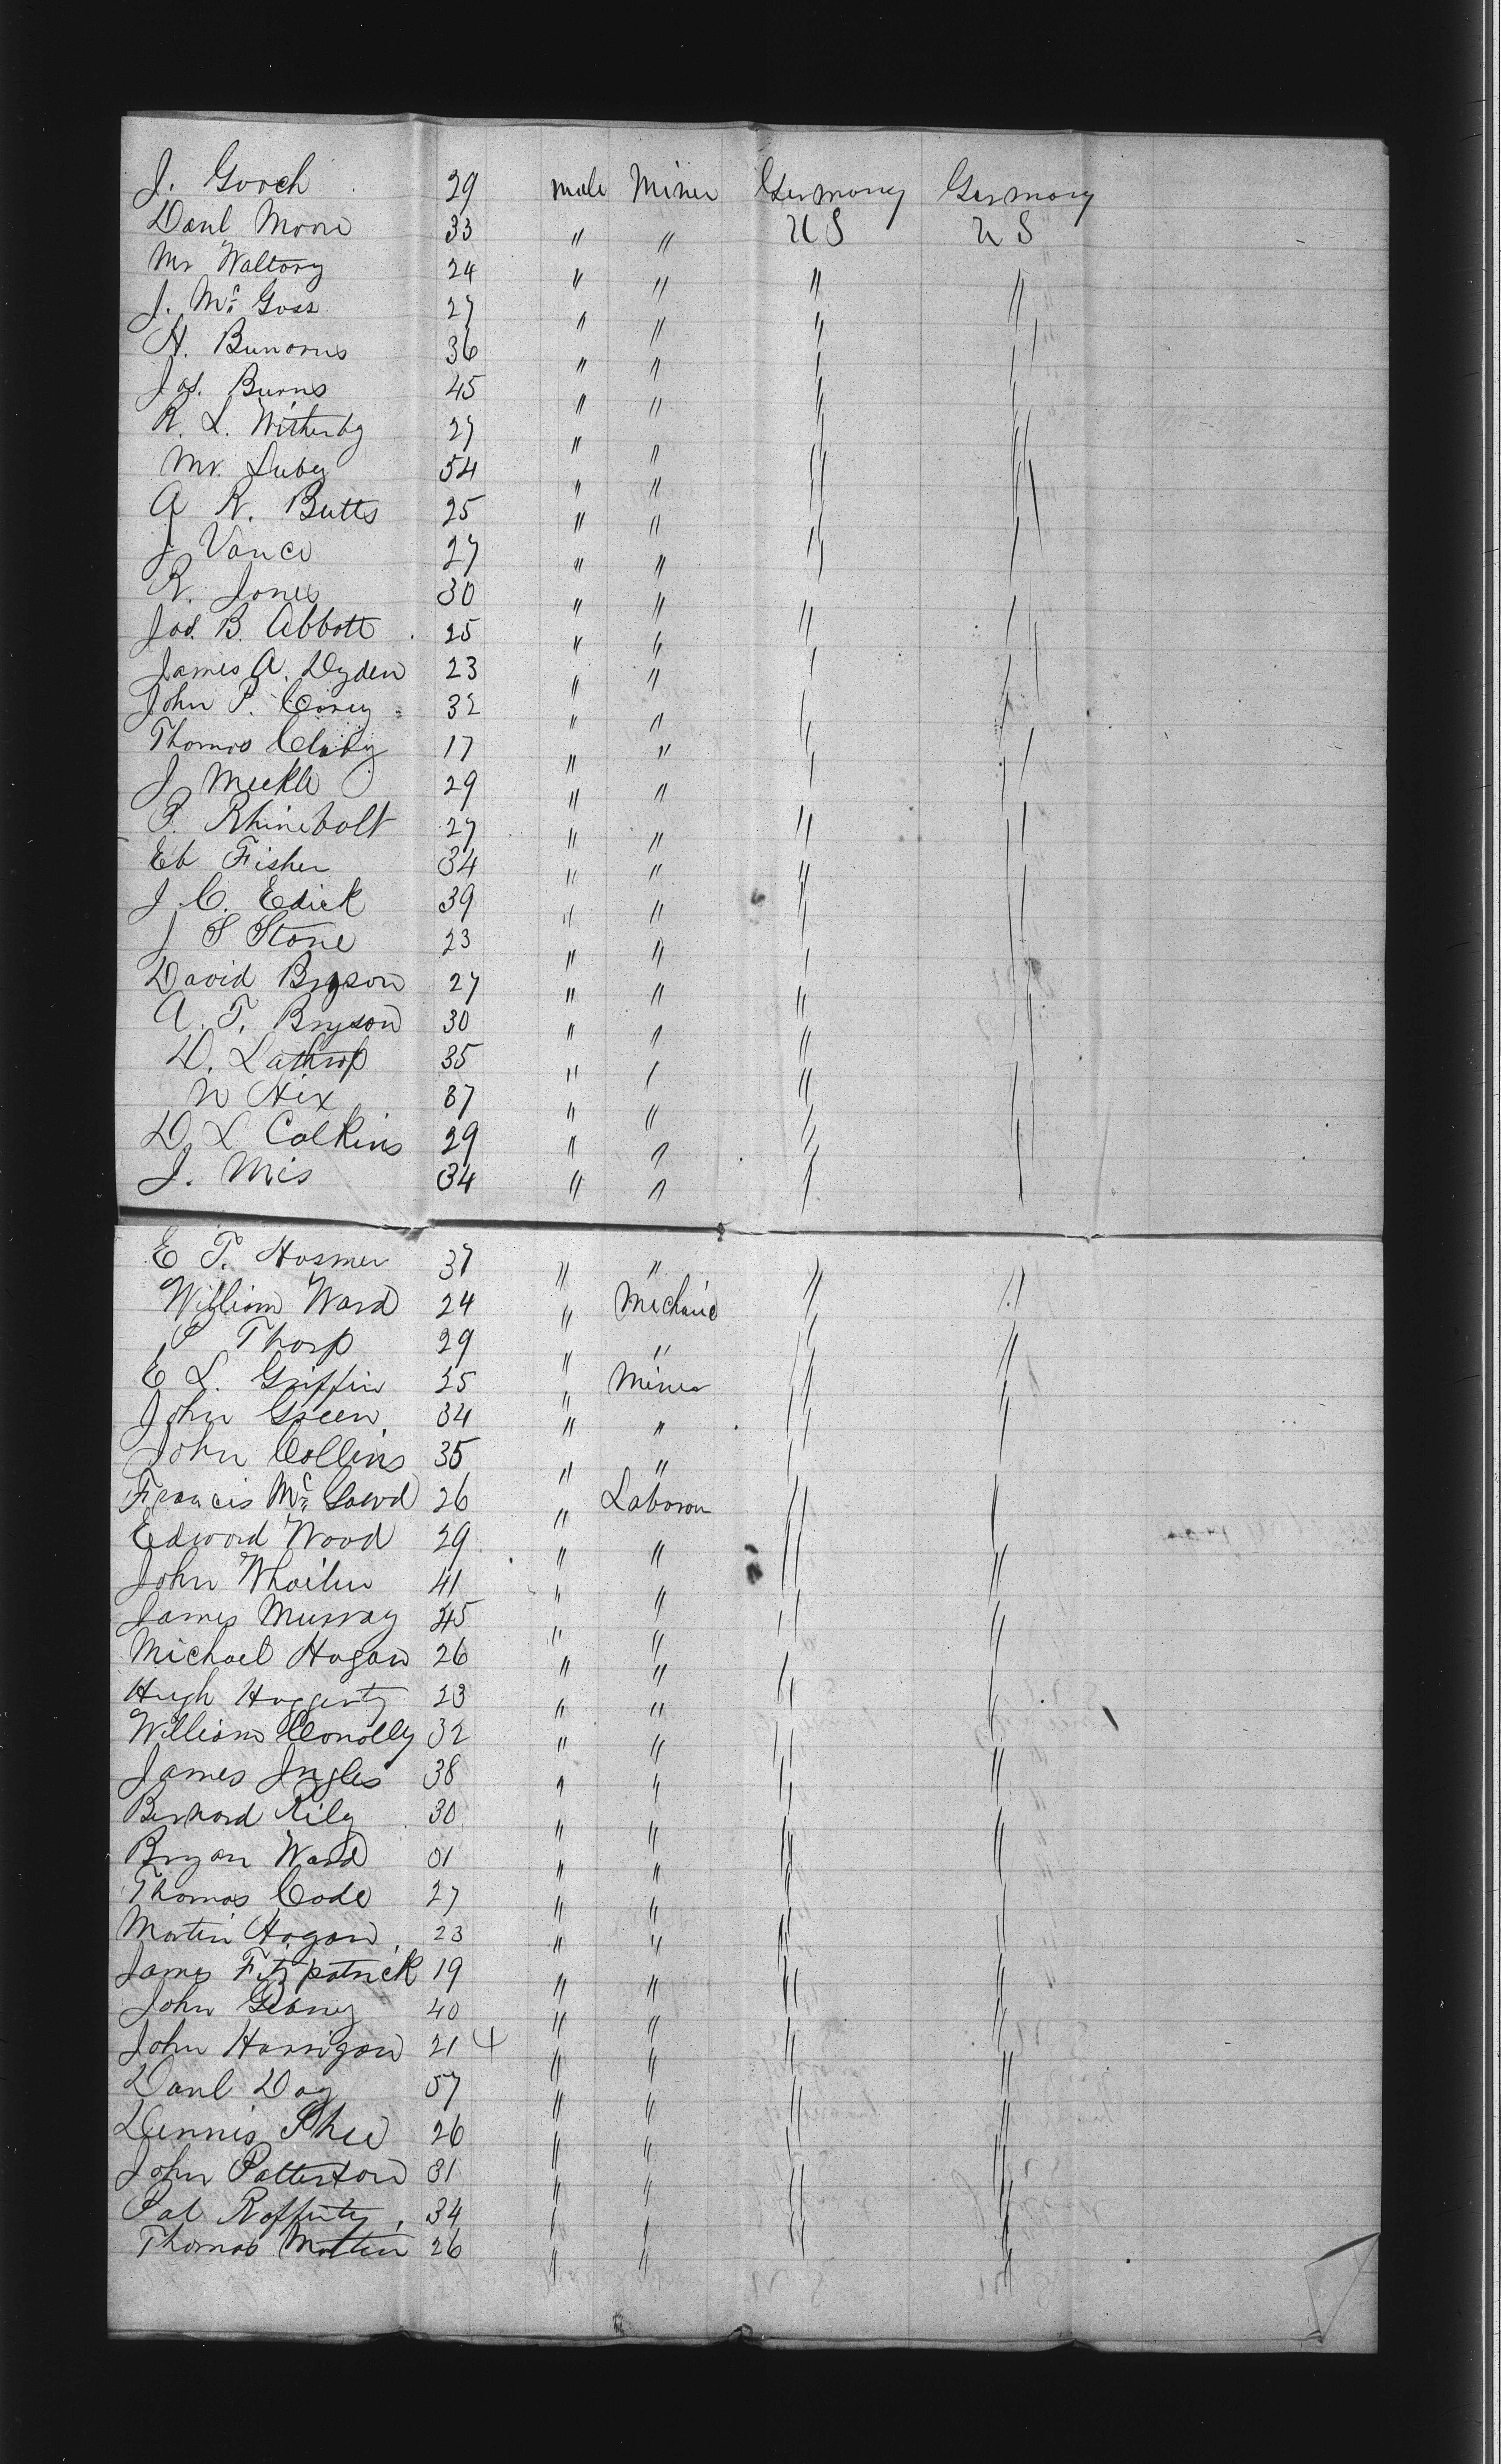 J. Gooch 29 male Miner Germany Germany
Danl Moore 33 " " U S U S
Mr Waltory 24 " " " "
J. Mc Goss 27 " " " "
H. 36 " " " "
Jas. Burns 45 " " " "
R. L. Witherby 27 " " " "
Mr. Luby 54 " " " "
A R. Butts 25 " " " "
J Vance 27 " " " "
R. Jones 30 " " " "
Jas. B. Abbott 25 " " " "
James A. Dyden 23 " " " "
John P. Corey 32 " " " "
Thomas Claby 17 " " " "
J Meekle 29 " " " "
P. Rhinebolt 27 " " " "
Eb Fisher 34 " " " "
J. C. Edick 39 " " " "
J S Stone 23 " " " "
David Bryson 27 " " " "
A. T. Bryson 30 " " " "
D. Lathrop 35 " " " "
N Hix 37 " " " "
D. L Calkins 29 " " " "
J. Mis 34 " " " "
E T. Hosmer 37 " " " "
William Ward 24 " Mechanic " "
P Thorp 29 " " " "
E L. Griffin 25 " Miner " "
John Green 34 " " " "
John Collins 35 " " " "
Francis Mc 26 " Laborer " "
Edward Wood 29 " " " "
John Whailen 41 " " " "
James Murray 45 " " " "
Michael Hogan 26 " " " "
Hugh Haggerty 23 " " " "
William Conolly 32 " " " "
James Ingles 38 " " " "
Bernard Rily 30 " " " "
Bryan Ward 31 " " " "
Thomas Code 27 " " " "
Martin Hogan 23 " " " "
James Fitzpatrick 19 " " " "
John Gibney 40 " " " "
John Harrigan 21 4 " " " "
Danl Day 37 " " " "
Dennis Shee 26 " " " "
John Patterson 31 " " " "
Pat Rafferty 34 " " " "
Thomas Martin 26 " " " "